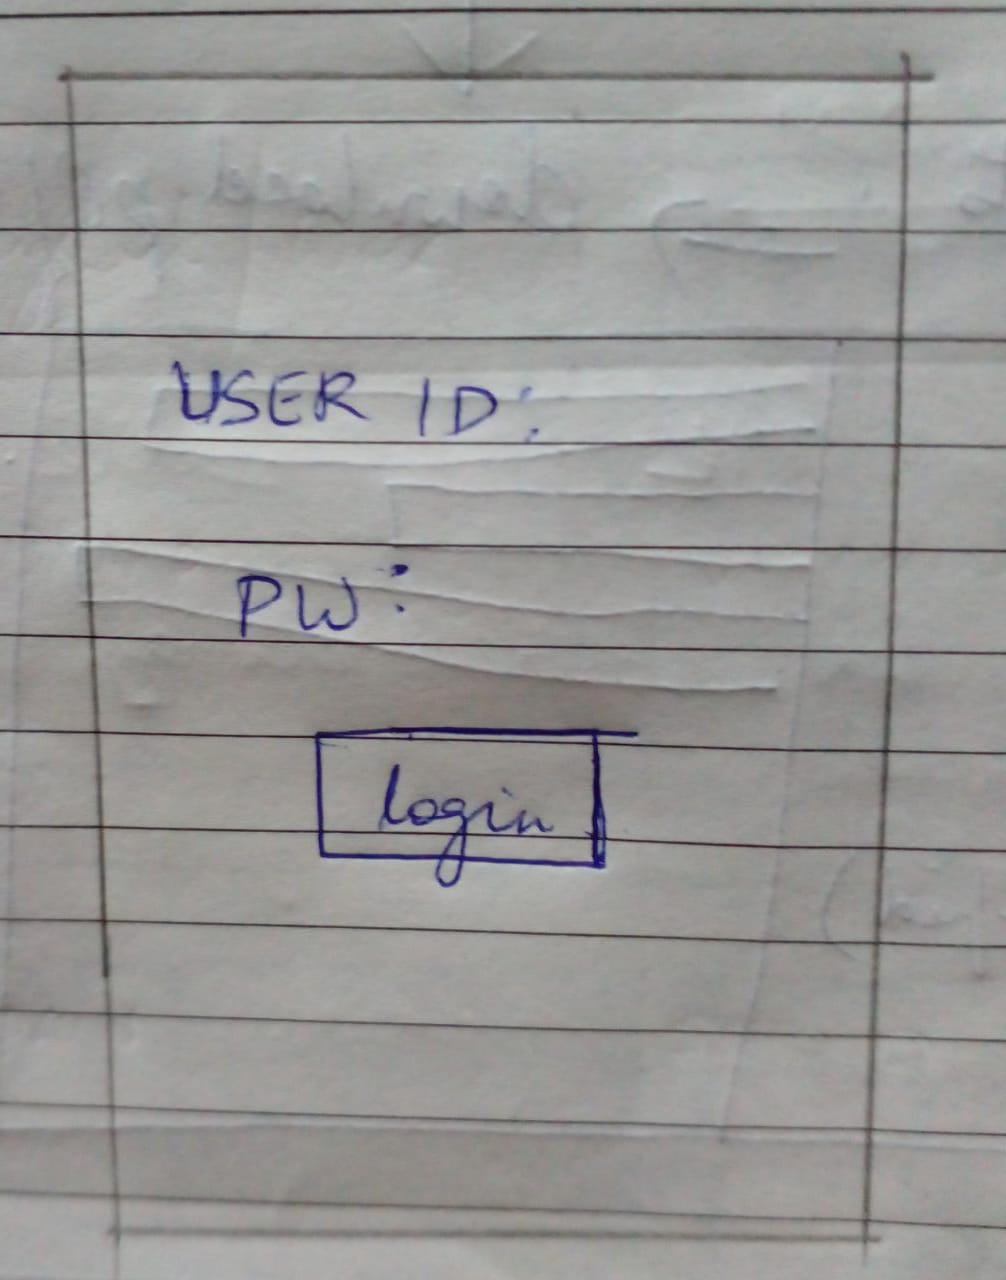 USER ID:
PW:
login